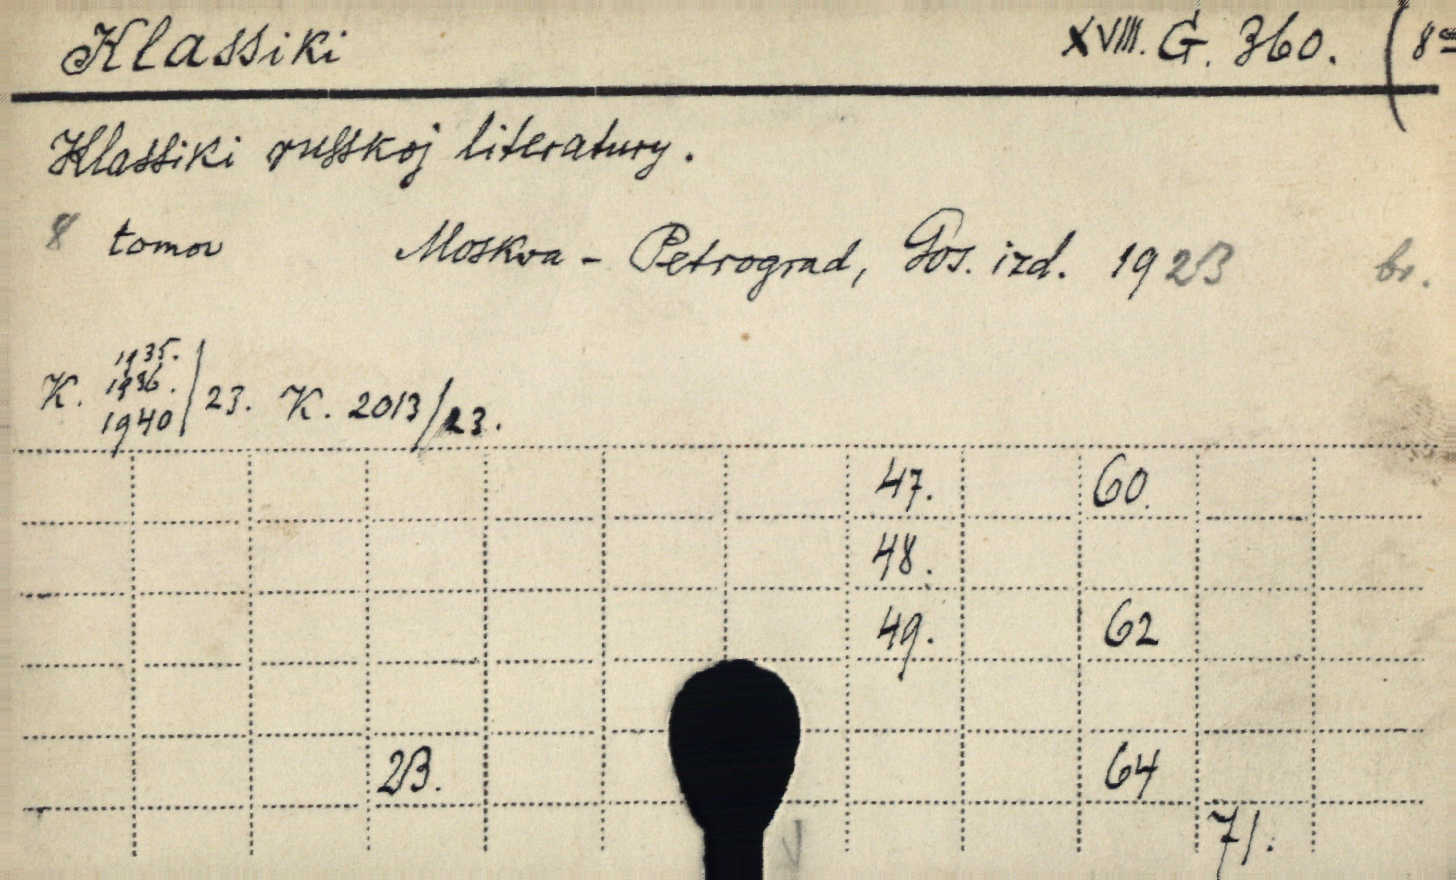 Klassiki XVIII. G. 360. (8°
Klassiki russkoj literatury.
8 tomov Moskva - Petrograd, Gos. izd. 1923 br.
1935.
K. 1936. /23. K. 2013/23.
1940
47. 60.
48.
49. 62
23. 64
71.
V